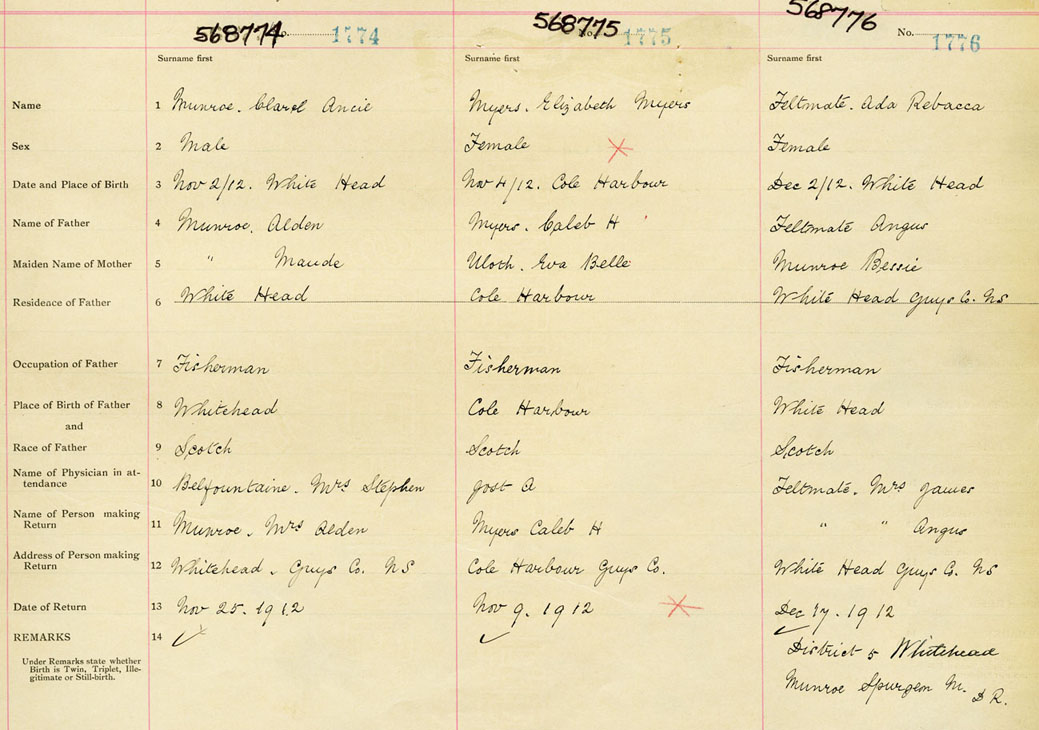 568774 No. 1774 568775 No. 1775 568776 No. 1776
Surname first Surname first Surname first
Name 1 Munroe. Clarel Ancie Myers. Elizabeth Myers Feltmate. Ada Rebacca
Sex 2 Male Female Female
Date and Place of Birth 3 Nov 2/12. White Head Nov 4/12. Cole Harbour Dec 2/12. White Head
Name of Father 4 Munroe. Alden Myers. Caleb H Feltmate Angus
Maiden Name of Mother 5 " Maude Uloth. Eva Belle Munroe Bessie
Residence of Father 6 White Head Cole Harbour White Head Guys Co. NS
Occupation of Father 7 Fisherman Fisherman Fisherman
Place of Birth of Father 8 Whitehead Cole Harbour White Head
and
Race of Father 9 Scotch Scotch Scotch
Name of Physician in at-
tendance 10 Belfountaine. Mrs Stephen Jost A Feltmate. Mrs James
Name of Person making
Return 11 Munroe. Mrs Alden Myers Caleb H " " Angus
Address of Person making
Return 12 Whitehead. Guys Co. NS Cole Harbour Guys Co. White Head Guys Co. NS
Date of Return 13 Nov 25. 1912 Nov 9. 1912 Dec 17. 1912
REMARKS 14 ✓ ✓ ✓
Under Remarks state whether
Birth is Twin, Triplet, Ille-
gitimate or Still-birth.
District 5 Whitehead
Munroe Spurgeon M. D R.